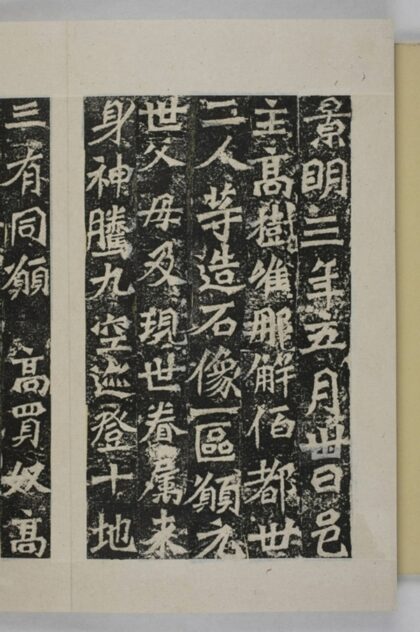 景明三年五月卅日邑
主高樹唯那解佰都卅
二人等造石像一區願元
世父母及現世眷屬来
身神騰九空迹登十地
三有同願 高買奴高